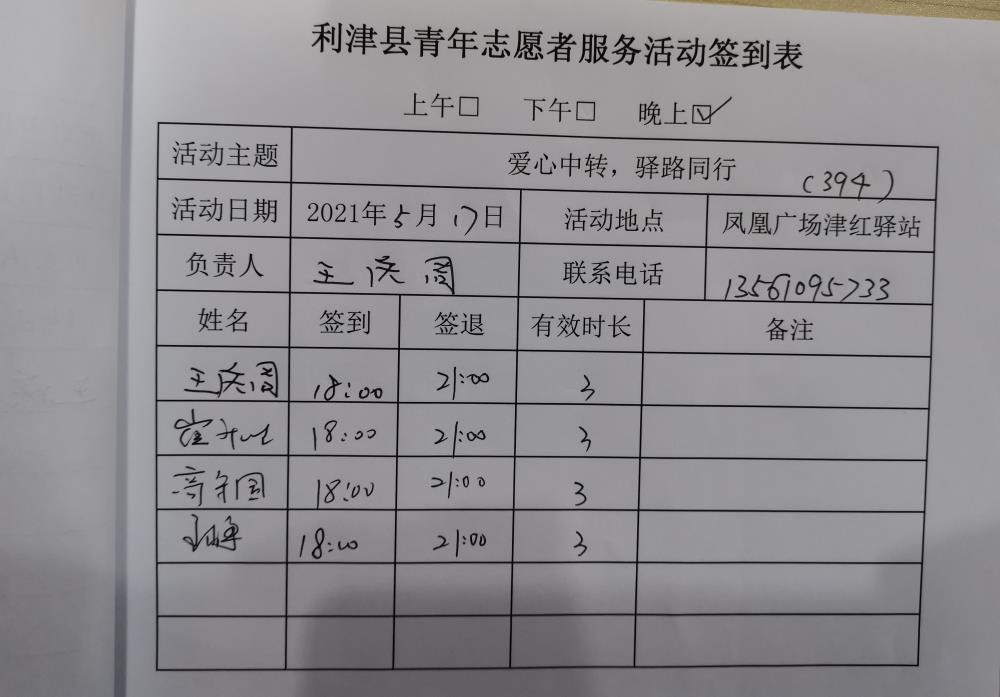 利津县青年志愿者服务活动签到表
上午□ 下午□ 晚上☑
活动主题 爱心中转，驿路同行 (394)
活动日期 2021年5月17日 活动地点 凤凰广场津红驿站
负责人 王庆周 联系电话 13561095733
姓名 签到 签退 有效时长 备注
王庆周 18:00 21:00 3
崔 18:00 21:00 3
高守国 18:00 21:00 3
18:00 21:00 3